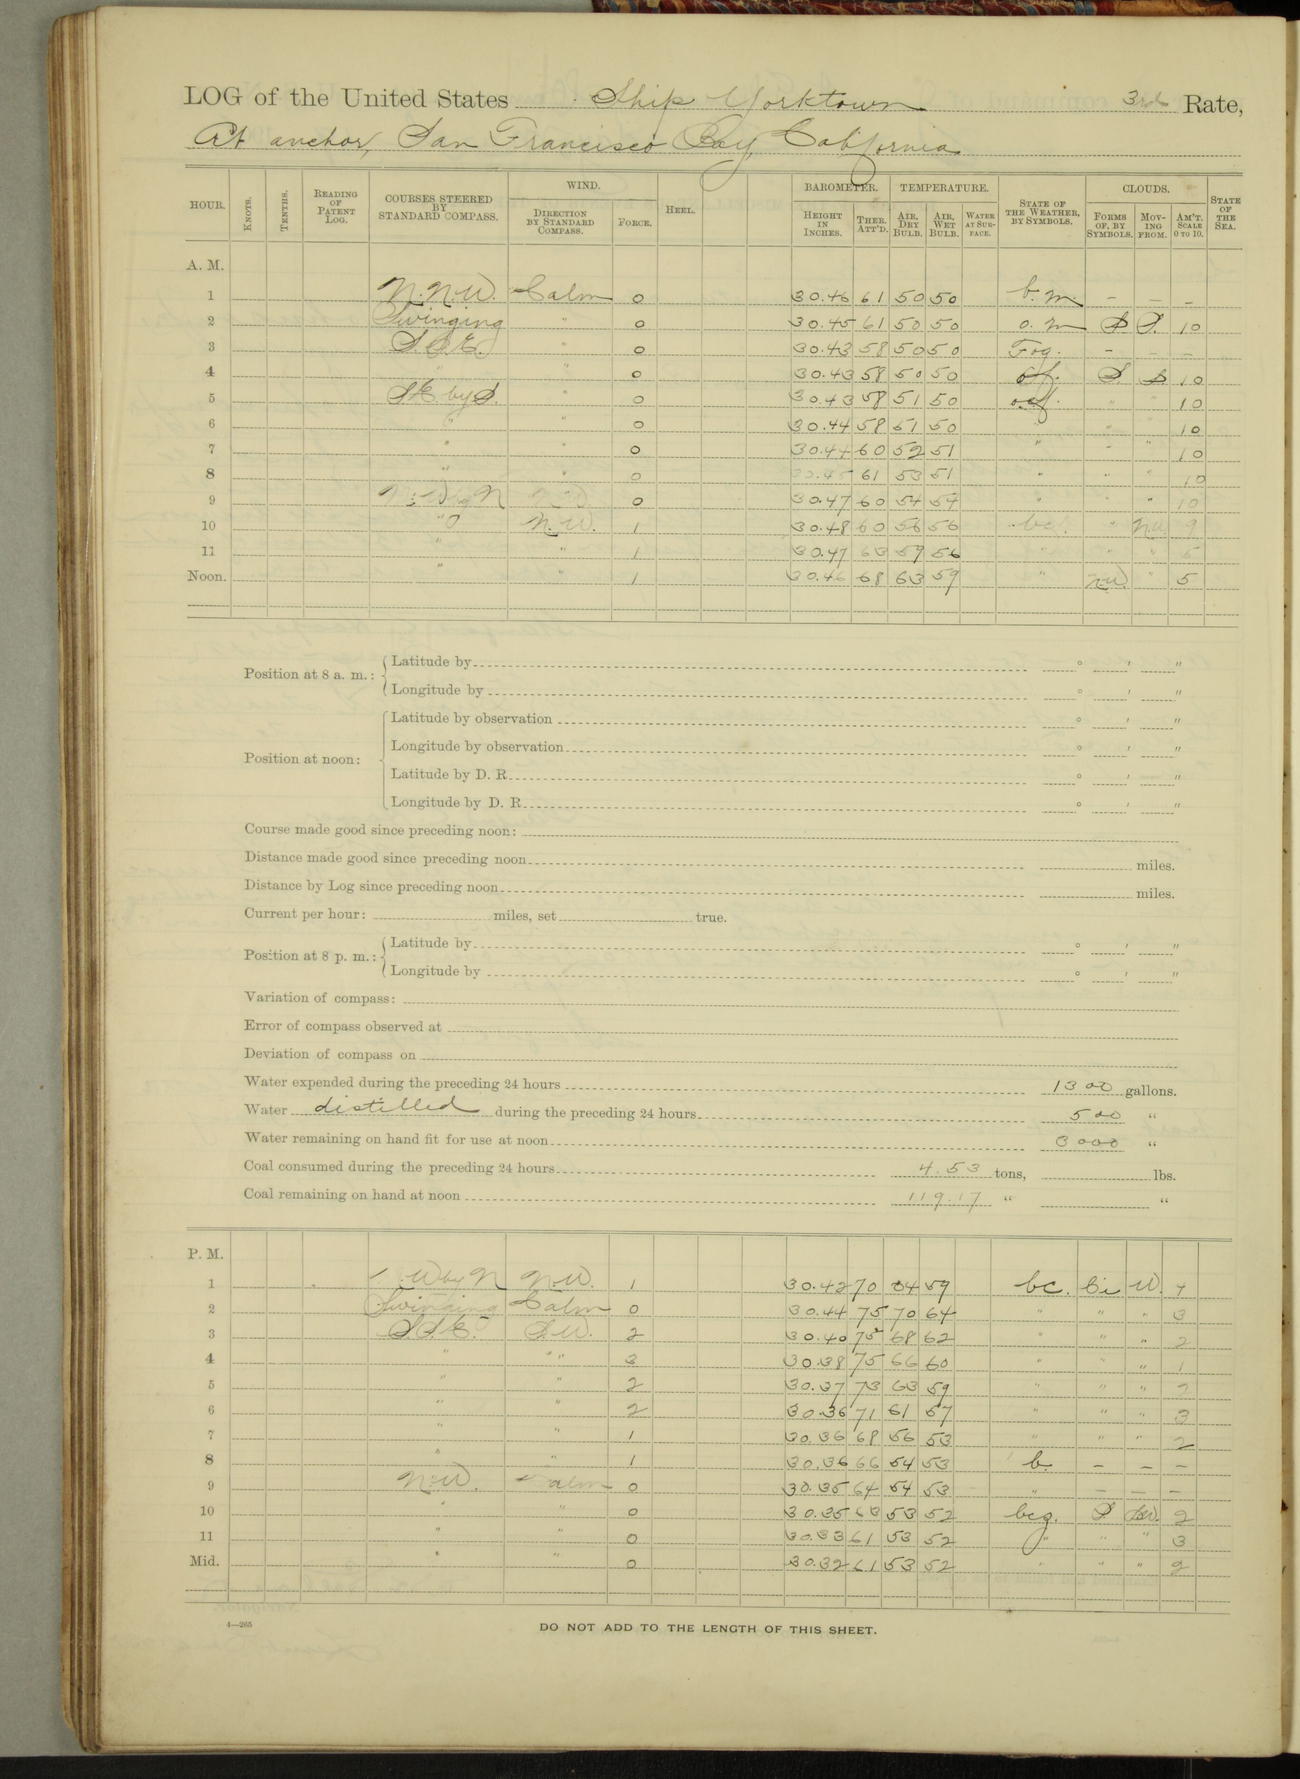 LOG of the United States Ship Yorktown 3rd Rate,
At anchor, San Francisco Bay, California
HOUR. KNOTS. TENTHS. READING OF PATENT LOG. COURSES STEERED BY STANDARD COMPASS. WIND. DIRECTION BY STANDARD COMPASS. FORCE. HEEL. BAROMETER. HEIGHT IN INCHES. THER. ATT'D. TEMPERATURE. AIR, DRY BULB. AIR, WET BULB. WATER AT SURFACE. STATE OF THE WEATHER, BY SYMBOLS. CLOUDS. FORMS OF, BY SYMBOLS. MOVING FROM. AM'T. SCALE 0 TO 10. STATE OF THE SEA.
A. M.
1 N.N.W. Calm 0 30.46 61 50 50 b.m. – – –
2 Swinging " 0 30.45 61 50 50 o.m S S. 10
3 S.S.E. " 0 30.43 58 50 50 Fog. – – –
4 " " 0 30.43 58 50 50 of. S S 10
5 SE by S. " 0 30.43 58 51 50 " " 10
6 " " 0 30.44 58 51 50 " " " 10
7 " " 0 30.44 60 52 51 " " " 10
8 " " 0 30.45 61 53 51 " " " 10
9 N.W by N 0 30.47 60 54 54 " " " 10
10 " N.W. 1 30.48 60 56 56 bc. " N.W. 9
11 " " 1 30.47 63 59 56 " " " 5
Noon. " " 1 30.46 68 63 59 " N.W. " 5
Position at 8 a. m.: Latitude by ° ′ ″
Longitude by ° ′ ″
Position at noon: Latitude by observation ° ′ ″
Longitude by observation ° ′ ″
Latitude by D. R. ° ′ ″
Longitude by D. R. ° ′ ″
Course made good since preceding noon:
Distance made good since preceding noon miles.
Distance by Log since preceding noon miles.
Current per hour: miles, set true.
Position at 8 p. m.: Latitude by ° ′ ″
Longitude by ° ′ ″
Variation of compass:
Error of compass observed at
Deviation of compass on
Water expended during the preceding 24 hours 1300 gallons.
Water distilled during the preceding 24 hours 500 "
Water remaining on hand fit for use at noon 3000 "
Coal consumed during the preceding 24 hours 4.53 tons, lbs.
Coal remaining on hand at noon 119.17 " "
P. M.
1 N.W by N N.W. 1 30.42 70 64 59 bc. Ci W. 4
2 Swinging Calm 0 30.44 75 70 64 " " " 3
3 S.S.E. S.W. 2 30.40 75 68 62 " " " 2
4 " " " 3 30.38 75 66 60 " " " 1
5 " " 2 30.37 73 63 59 " " " 2
6 " " 2 30.36 71 61 57 " " " 3
7 " " 1 30.36 68 56 53 " " " 2
8 " " 1 30.36 66 54 53 b. – – –
9 N.W. Calm 0 30.35 64 54 53 " – – –
10 " " 0 30.35 63 53 52 bcg. S S.W. 2
11 " " 0 30.33 61 53 52 " " " 3
Mid. " " 0 30.32 61 53 52 " " " 2
4—265
DO NOT ADD TO THE LENGTH OF THIS SHEET.